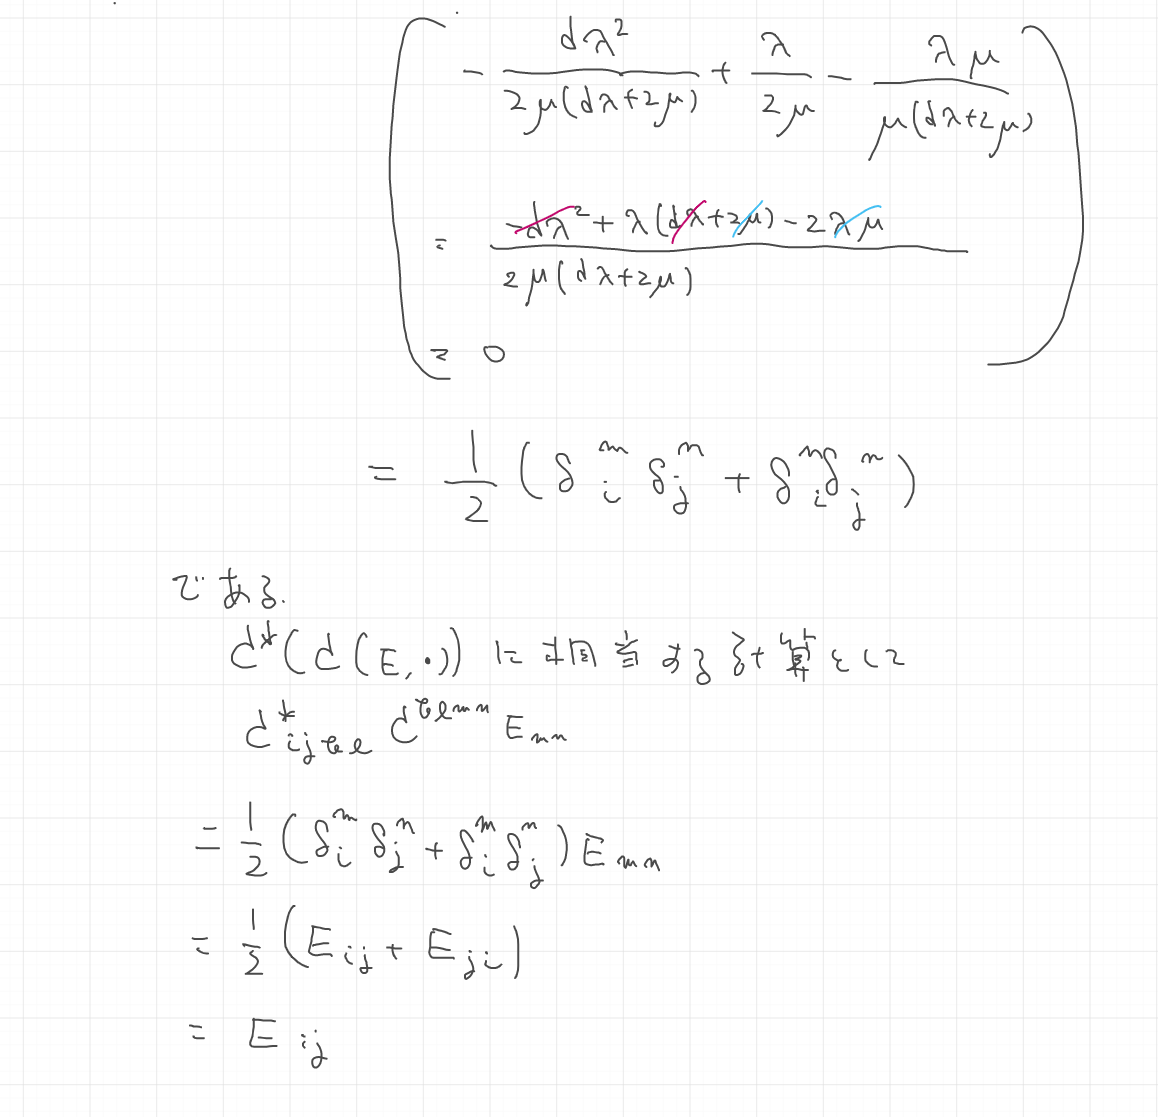 ( - dλ² / 2μ(dλ+2μ) + λ / 2μ - λμ / μ(dλ+2μ)
= -dλ² + λ(dλ+2μ) - 2λμ / 2μ(dλ+2μ)
= 0 )
= 1/2 (δ_i^m δ_j^n + δ_i^n δ_j^m)
である.
C*(C(E,・)) に相当する計算として
C*_{ijkl} C^{klmn} E_{mn}
= 1/2 (δ_i^m δ_j^n + δ_i^m δ_j^n) E_{mn}
= 1/2 (E_{ij} + E_{ji})
= E_{ij}